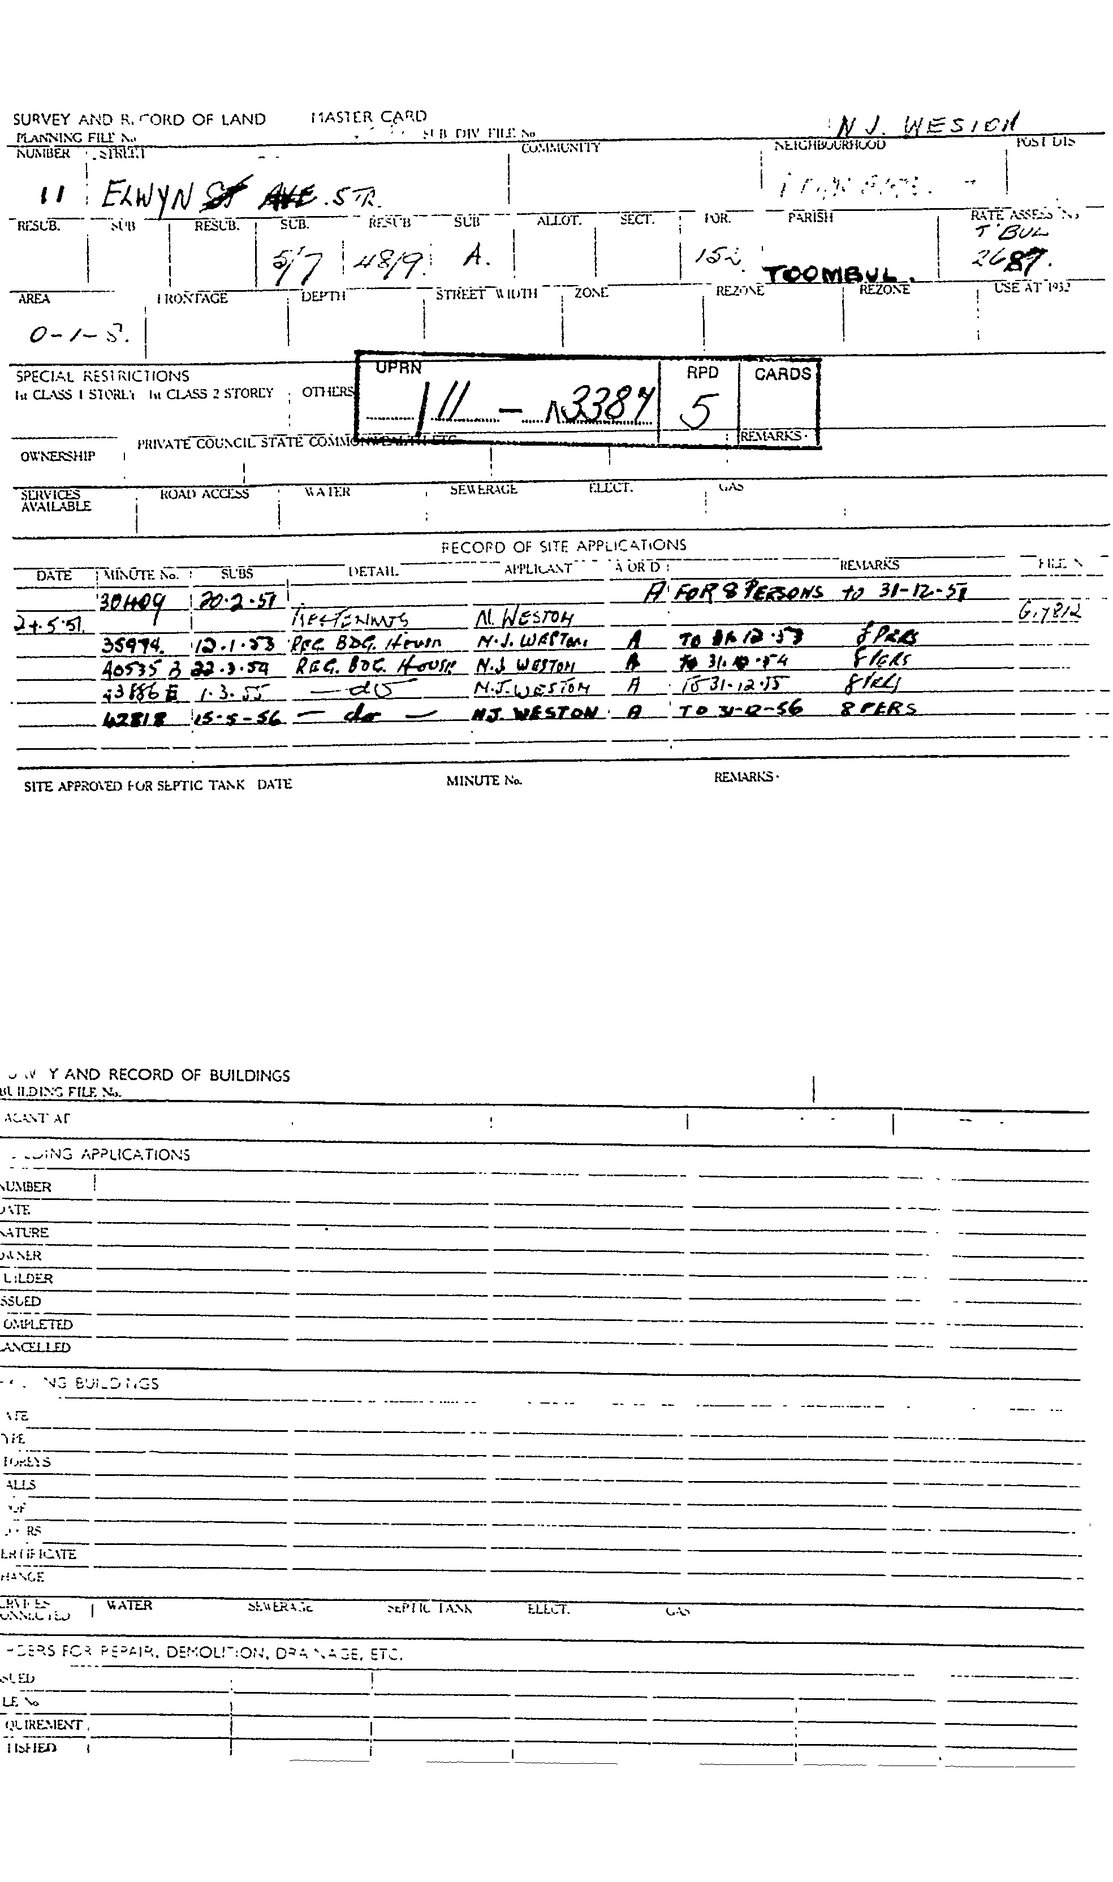 SURVEY AND RECORD OF LAND MASTER CARD
PLANNING FILE No. SUB DIV FILE No N J. WESTON
NUMBER STREET COMMUNITY NEIGHBOURHOOD POST DIS
11 ELWYN ST AVE. STR.
RESUB. SUB RESUB. SUB. RESUB SUB ALLOT. SECT. POR. PARISH RATE ASSESS No
T'BUL
5/7 48/9 A. 152. TOOMBUL. 2687.
AREA FRONTAGE DEPTH STREET WIDTH ZONE REZONE REZONE USE AT 1932
0-1-8.
SPECIAL RESTRICTIONS UPRN RPD CARDS
1st CLASS 1 STOREY 1st CLASS 2 STOREY OTHERS
/11 - 3387 5
OWNERSHIP PRIVATE COUNCIL STATE COMMONWEALTH ETC REMARKS
SERVICES AVAILABLE ROAD ACCESS WATER SEWERAGE ELECT. GAS
RECORD OF SITE APPLICATIONS
DATE MINUTE No. SUBS DETAIL APPLICANT A OR D REMARKS FILE N
30409 20.2.51 A FOR 8 PERSONS to 31-12-51
24.5.51. M. WESTON G.7812
35974. 12.1.53 REG. BDG. HOUSE N.J. WESTON. A TO 31.12.53 8 PERS
40535 B 22.3.54 REG. BDG. HOUSE N.J WESTON A TO 31.12.54 8 PERS
43886 E 1.3.55 — do N.J. WESTON A TO 31-12-55 8 PERS
42818 15-5-56 — do — N.J. WESTON A TO 31-12-56 8 PERS
SITE APPROVED FOR SEPTIC TANK DATE MINUTE No. REMARKS
Y AND RECORD OF BUILDINGS
BUILDING FILE No.
ACANT AT
DING APPLICATIONS
NUMBER
DATE
NATURE
OWNER
UILDER
SSUED
OMPLETED
ANCELLED
NG BUILDINGS
ATE
YPE
TOREYS
ALLS
OF
RS
ERTIFICATE
HANGE
ERVICES ONNECTED WATER SEWERAGE SEPTIC TANK ELECT. GAS
RDERS FOR REPAIR, DEMOLITION, DRAINAGE, ETC.
SSUED
LE No
QUIREMENT
TISFIED